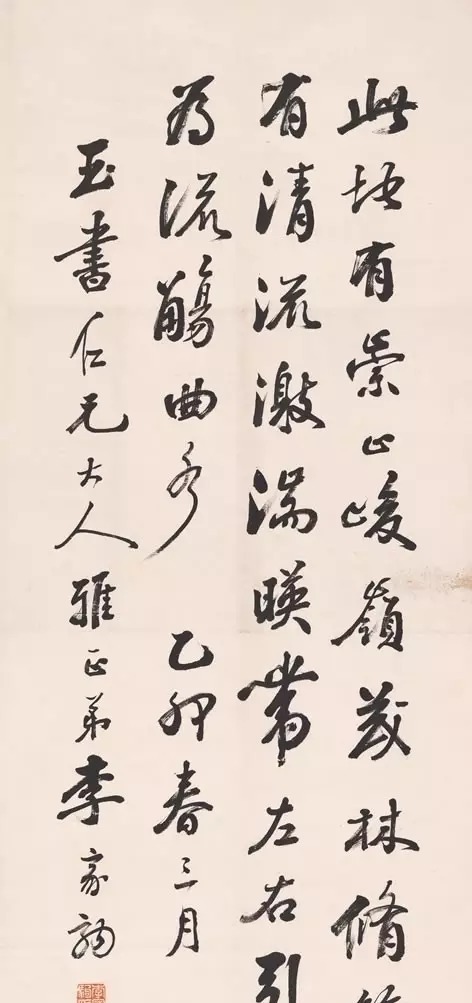 此地有崇山峻嶺茂林脩
有清流激湍暎帶左右引
為流觴曲水 乙卯春三月
玉書仁兄大人雅正弟李家駒